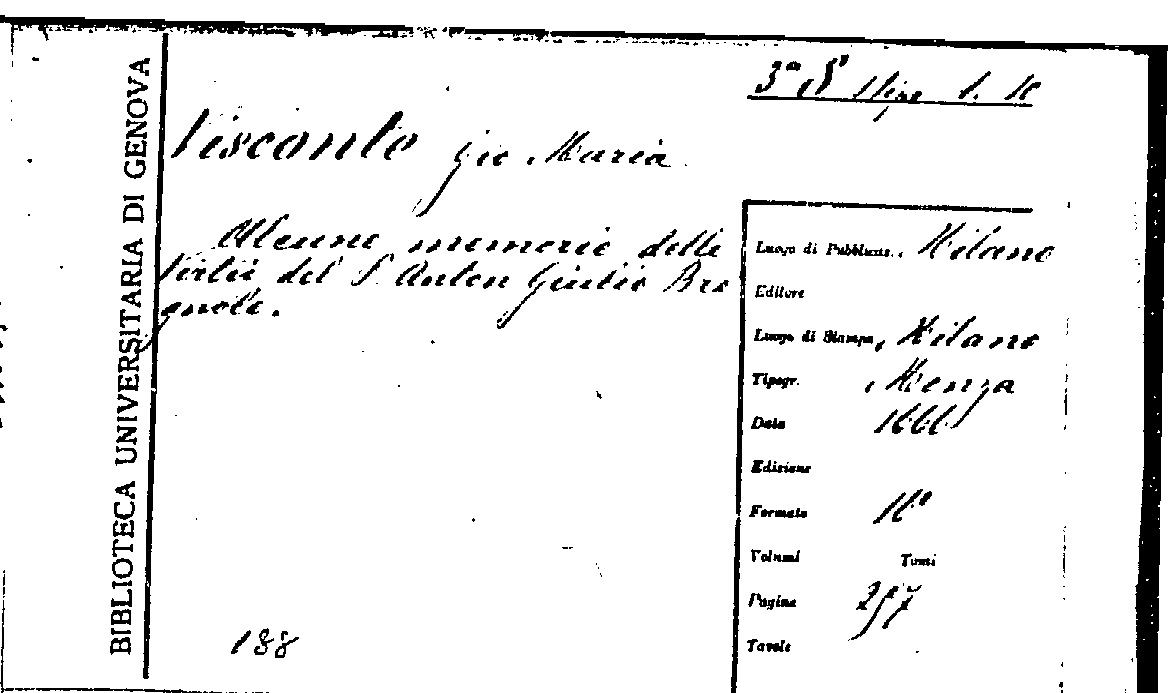 BIBLIOTECA UNIVERSITARIA DI GENOVA
Visconte Gio Maria
Alcune memorie delle
virtù del P. Anton Giulio Bri
gnole.
188
Luogo di Pubblicaz. Milano
Editore
Luogo di Stampa Milano
Tipogr. Monza
Data 1666
Edizione
Formato 16°
Volumi Tomi
Pagine 257
Tavole